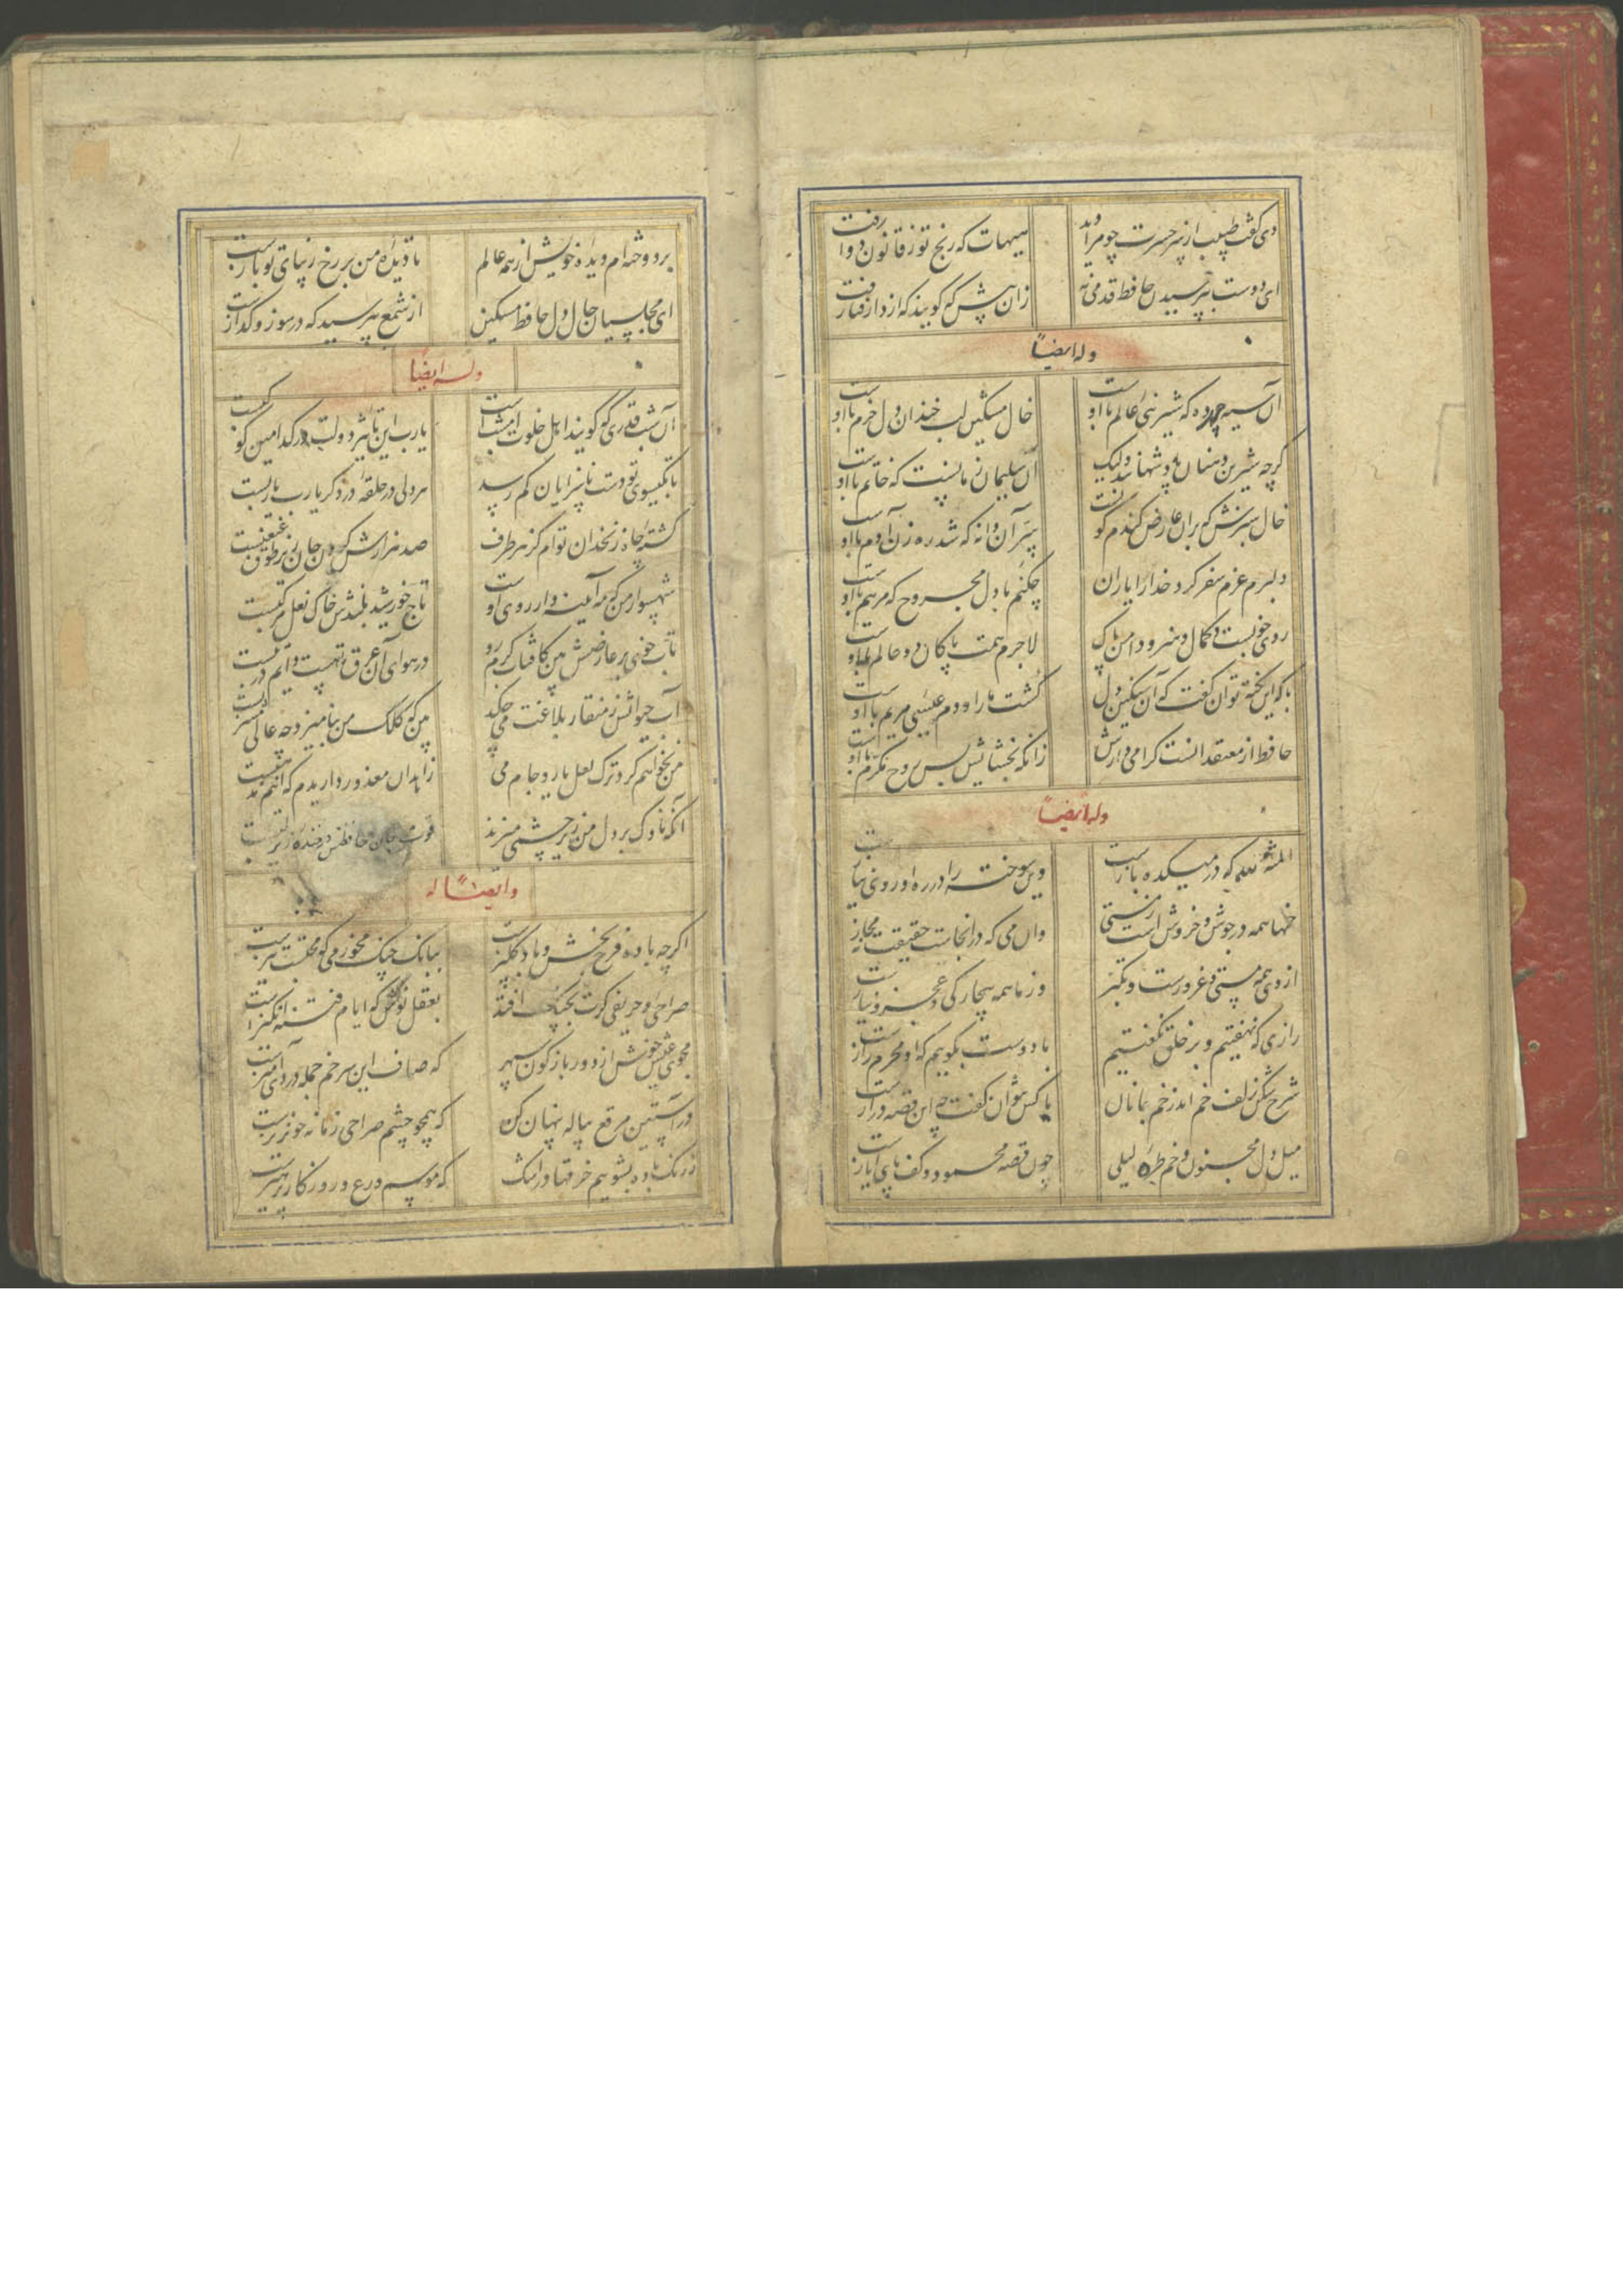 دی گفت طبیب از سر حسرت چو مرا دید
هیهات که رنج تو ز قانون دوا رفت
ای دوست بپرسیدن حافظ قدمی نه
زان پیش که گویند که از دار فنا رفت
وله ایضاً
آن سیه چرده که شیرینی عالم با اوست
خال مشکین لب خندان دل خرم با اوست
گرچه شیرین دهنان پادشهانند ولیک
آن سلیمان زمانست که خاتم با اوست
خال سرسبزش که بران عارض گندم گونست
سر آن دانه که شد ره زن آدم با اوست
دلبرم عزم سفر کرد خدا را یاران
چکنم با دل مجروح که مرهم با اوست
روی خوبست و کمال و هنر و دامن پاک
لاجرم همت پاکان دو عالم با اوست
با که این نکته توان گفت که آن سنگین دل
کشت ما را و دم عیسی مریم با اوست
حافظ از معتقدانست گرامی دارش
زانکه بخشایش بس روح مکرم با اوست
وله ایضاً
المنة لله که در میکده بازست
وین سوخته را در ره او روی نیازست
خمها همه در جوش و خروش است ز مستی
وان می که در انجاست حقیقت نه مجازست
از وی همه مستی و غرورست و تکبر
وز ما همه بیچارگی و عجز و نیازست
رازی که نهفتیم و بر خلق نگفتیم
با دوست بگوییم که او محرم رازست
شرح شکن زلف خم اندر خم جانان
با کس نتوان گفت چه این قصه درازست
میل دل مجنون و خم طره لیلی
چون قصه محمود و کف پای ایازست
بر دوخته ام دیده خویش از همه عالم
تا دیده من بر رخ زیبای تو بازست
ای مجلسیان حال دل حافظ مسکین
از شمع بپرسید که در سوز و گدازست
وله ایضاً
آن شب قدری که گویند اهل خلوت امشب است
یا رب این تاثیر دولت در کدامین کوکبست
تا بگیسوی تو دست ناسزایان کم رسد
هر دلی در حلقه در ذکر یا رب یا ربست
کشته چاه زنخدان توام کز هر طرف
صد هزارش گردن جان زیر طوق غبغبست
شهسوار من که مه آیینه دار روی اوست
تاج خورشید بلندش خاک نعل مرکبست
تاب خوی بر عارضش بین کافتاب گرم رو
در هوای آن عرق تا هست دایم در تبست
آب حیوانش ز منقار بلاغت می چکد
من که کلک من بنامیزد چه عالی مشربست
من نخواهم کرد ترک لعل یار و جام می
زاهدان معذور داریدم که اینم مذهبست
آنکه ناوک بر دل من زیر چشمی میزند
قوت جان حافظش در خنده زیر لبست
وایضاً له
اگرچه باده فرح بخش و باد گلبیزست
ببانگ چنگ مخور می که محتسب تیزست
صراحی و حریفی گرت بچنگ افتد
بعقل نوش که ایام فتنه انگیزست
مجوی عیش خوش از دور باژگون سپهر
که صاف این سر خم جمله دردی آمیزست
در آستین مرقع پیاله پنهان کن
که همچو چشم صراحی زمانه خونریزست
ز رنگ باده بشوییم خرقها در اشک
که موسم ورع و روزگار پرهیزست